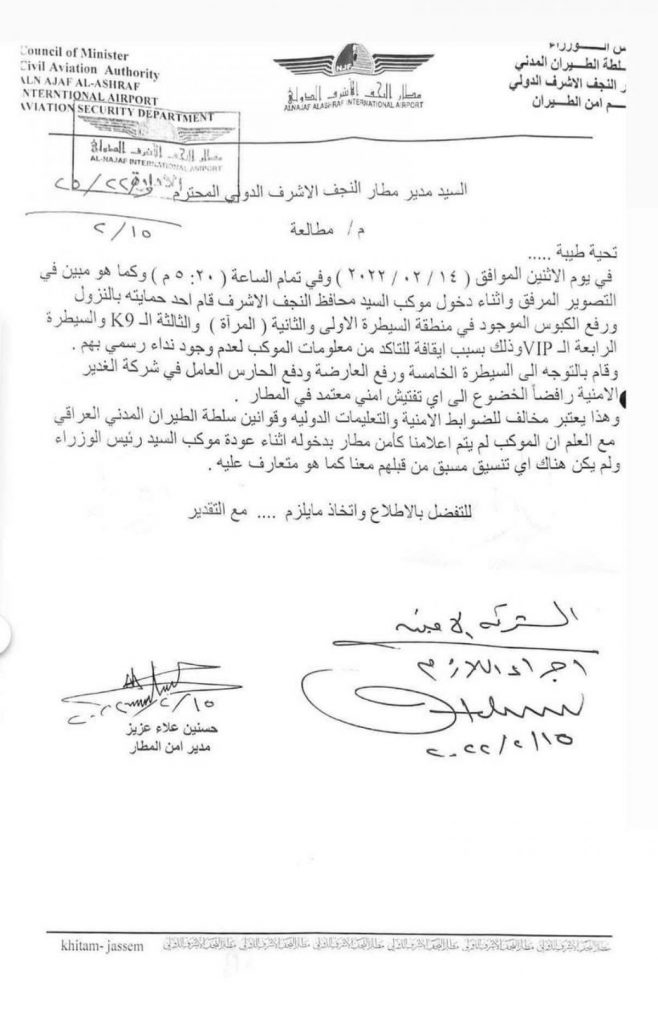 Council of Minister
Civil Aviation Authority
ALN AJAF AL-ASHRAF
INTERNTIONAL AIRPORT
AVIATION SECURITY DEPARTMENT
سلطة الطيران المدني
النجف الاشرف الدولي
امن الطيران
مطار النجف الأشرف الدولي
ALNAJAF ALASHRAF INTERNATIONAL AIRPORT
مطار النجف الأشرف الدولي
AL-NAJAF INTERNATIONAL AIRPORT
٢/١٥
السيد مدير مطار النجف الاشرف الدولي المحترم
م / مطالعة
تحية طيبة .....
في يوم الاثنين الموافق ( ١٤ / ٠٢ / ٢٠٢٢ ) وفي تمام الساعة ( ٥:٢٠ م ) وكما هو مبين في
التصوير المرفق واثناء دخول موكب السيد محافظ النجف الاشرف قام احد حمايته بالنزول
ورفع الكبوس الموجود في منطقة السيطرة الاولى والثانية ( المرآة ) والثالثة الـ K9 والسيطرة
الرابعة الـ VIP وذلك بسبب ايقافة للتاكد من معلومات الموكب لعدم وجود نداء رسمي بهم .
وقام بالتوجه الى السيطرة الخامسة ورفع العارضة ودفع الحارس العامل في شركة الغدير
الامنية رافضاً الخضوع الى اي تفتيش امني معتمد في المطار .
وهذا يعتبر مخالف للضوابط الامنية والتعليمات الدوليه وقوانين سلطة الطيران المدني العراقي
مع العلم ان الموكب لم يتم اعلامنا كأمن مطار بدخوله اثناء عودة موكب السيد رئيس الوزراء
ولم يكن هناك اي تنسيق مسبق من قبلهم معنا كما هو متعارف عليه .
للتفضل بالاطلاع واتخاذ مايلزم .... مع التقدير
الشركة الامنية
اجراء اللازم
٢٠٢٢/٢/١٥
٢٠٢٢/٢/١٥
حسنين علاء عزيز
مدير امن المطار
khitam- jassem
مطار النجف الاشرف الدولي مطار النجف الاشرف الدولي مطار النجف الاشرف الدولي مطار النجف الاشرف الدولي مطار النجف الاشرف الدولي مطار النجف الاشرف الدولي